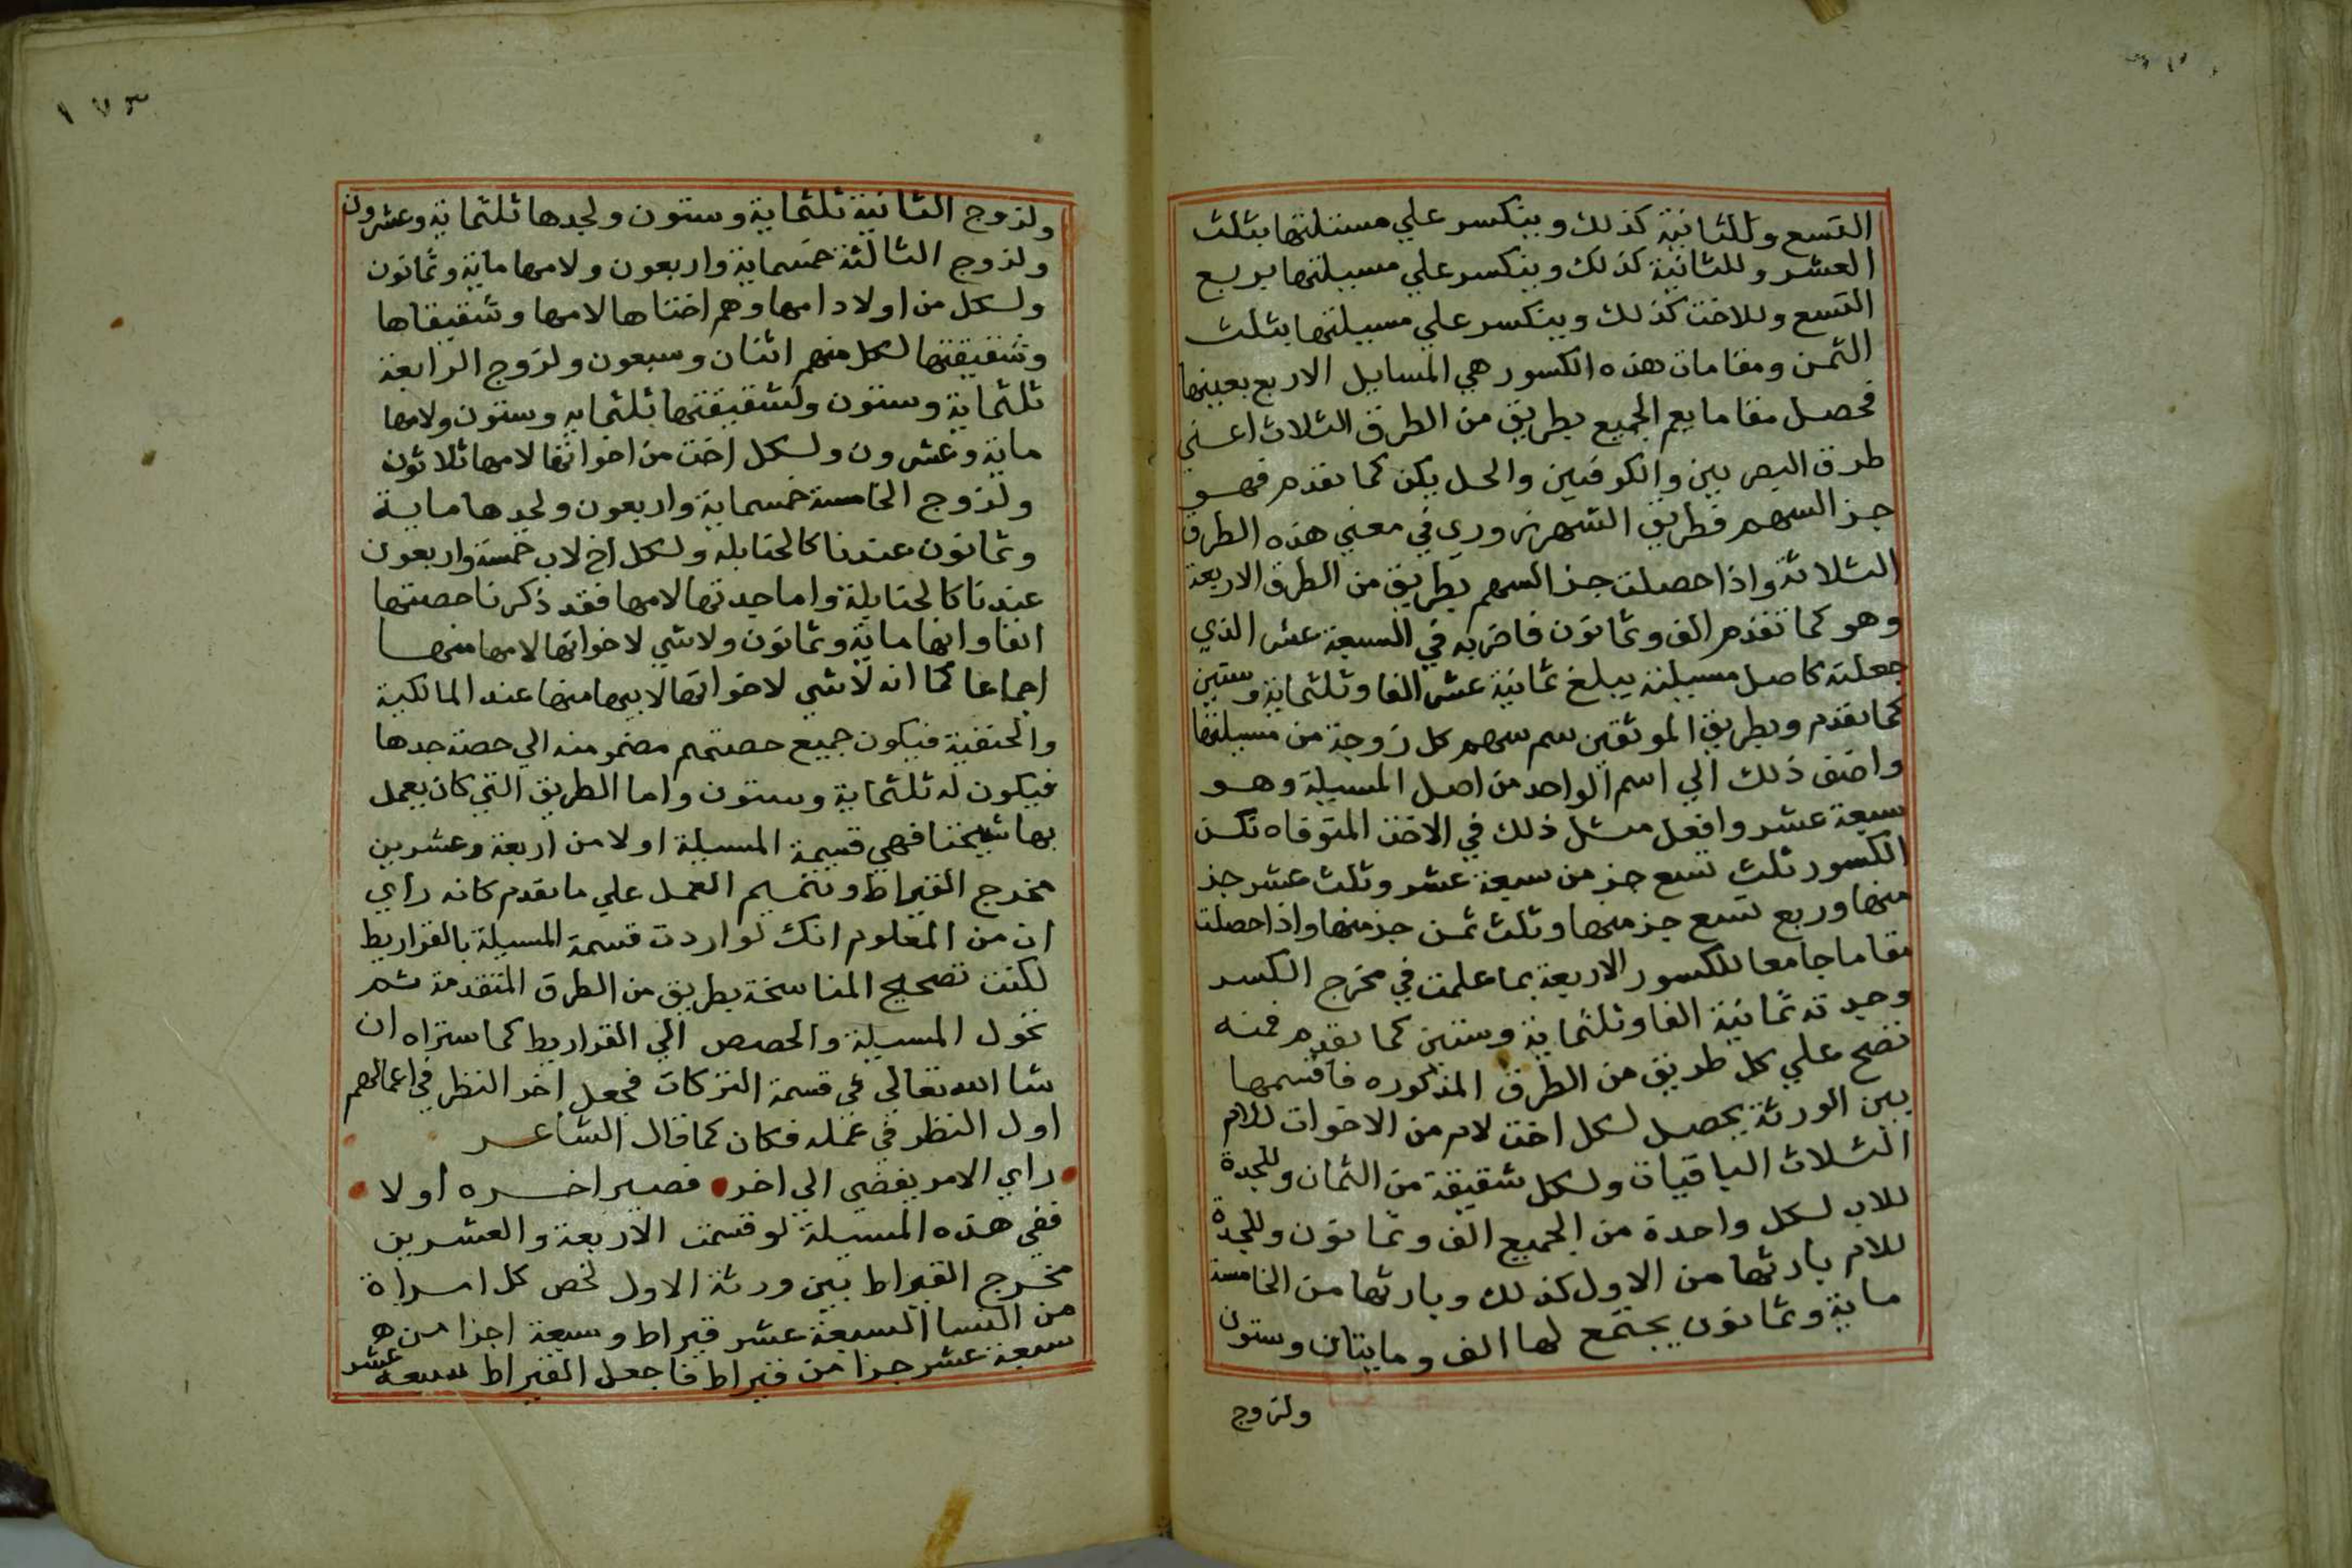 التسع وللثانية كذلك وينكسر علي مسئلتها بثلث
العشر وللثانية كذلك وينكسر علي مسيلتها بربع
التسع وللاخت كذلك وينكسر علي مسيلتها بثلث
الثمن ومقامات هذه الكسور هي المسايل الاربع بعينها
فحصل مقاما يعم الجميع بطريق من الطرق الثلاث اعني
طرق البصريين والكوفيين والحل يكن كما تقدم فهو
جز السهم فطريق الشهرزوري في معني هذه الطرق
الثلاثة واذا حصلت جز السهم بطريق من الطرق الاربعة
وهو كما تقدم الف وثمانون فاضربه في السبعة عشر الذي
جعلته كاصل مسيلته يبلغ ثمانية عشر الفا وثلثماية وستين
كما تقدم وبطريق الموثقين سم سهم كل زوجة من مسيلتها
واضف ذلك الي اسم الواحد من اصل المسيلة وهو
سبعة عشر وافعل مثل ذلك في الاخت المتوفاه تكن
الكسور ثلث تسع جز من سبعة عشر وثلث عشر جز
منها وربع تسع جز منها وثلث ثمن جز منها واذا حصلت
مقاما جامعا للكسور الاربعة بما علمت في مخرج الكسر
وجدته ثمانية الفا وثلثماية وستين كما تقدم فمنه
تصح علي كل طريق من الطرق المذكوره فاقسمها
بين الورثة يحصل لكل اخت لام من الاخوات للام
الثلاث الباقيات ولكل شقيقة من الثمان وللجدة
للاب لكل واحدة من الجميع الف وثمانون وللجدة
للام بارثها من الاول كذلك وبارثها من الخامسة
ماية وثمانون يجتمع لها الف ومايتان وستون
ولزوج
١٧٣
ولزوج الثانية ثلثماية وستون ولجدها ثلثماية وعشرون
ولزوج الثالثة خمسماية واربعون ولامها ماية وثمانون
ولكل من اولاد امها وهم اختاها لامها وشقيقاها
وشقيقتها لكل منهم اثنان وسبعون ولزوج الرابعة
ثلثماية وستون ولشقيقتها ثلثمايه وستون ولامها
ماية وعشرون ولكل اخت من اخواتها لامها ثلاثون
ولزوج الخامسة خمسماية واربعون ولجدها ماية
وثمانون عندنا كالحنابله ولكل اخ لاب خمسة واربعون
عندنا كالحنابلة واما جدتها لامها فقد ذكرنا حصتها
انفا وانها ماية وثمانون ولا شي لاخواتها لامها منها
اجماعا كما انه لا شي لاخواتها لابيها منها عند المالكية
والحنفية فيكون جميع حصتهم مضمومنه الي حصة جدها
فيكون له ثلثماية وستون واما الطريق التي كان يعمل
بها شيخنا فهي قسمة المسيلة اولا من اربعة وعشرين
مخرج القيراط وتتميم العمل علي ما تقدم كانه راي
ان من المعلوم انك لو اردت قسمة المسيلة بالقراريط
لكنت تصحيح المناسخة بطريق من الطرق المتقدمة ثم
تحول المسيلة والحصص الي القراريط كما ستراه ان
شا الله تعالي في قسمة التركات فجعل اخر النظر في اعمالهم
اول النظر في عمله فكان كما قال الشاعر
راي الامر يفضي الي اخر فصير اخره اولا
ففي هذه المسيلة لو قسمت الاربعة والعشرين
مخرج القيراط بين ورثة الاول لخص كل امراة
من النسا السبعة عشر قيراط وسبعة اجزا من
سبعة عشر جزا من قيراط فاجعل القيراط سبعه عشر